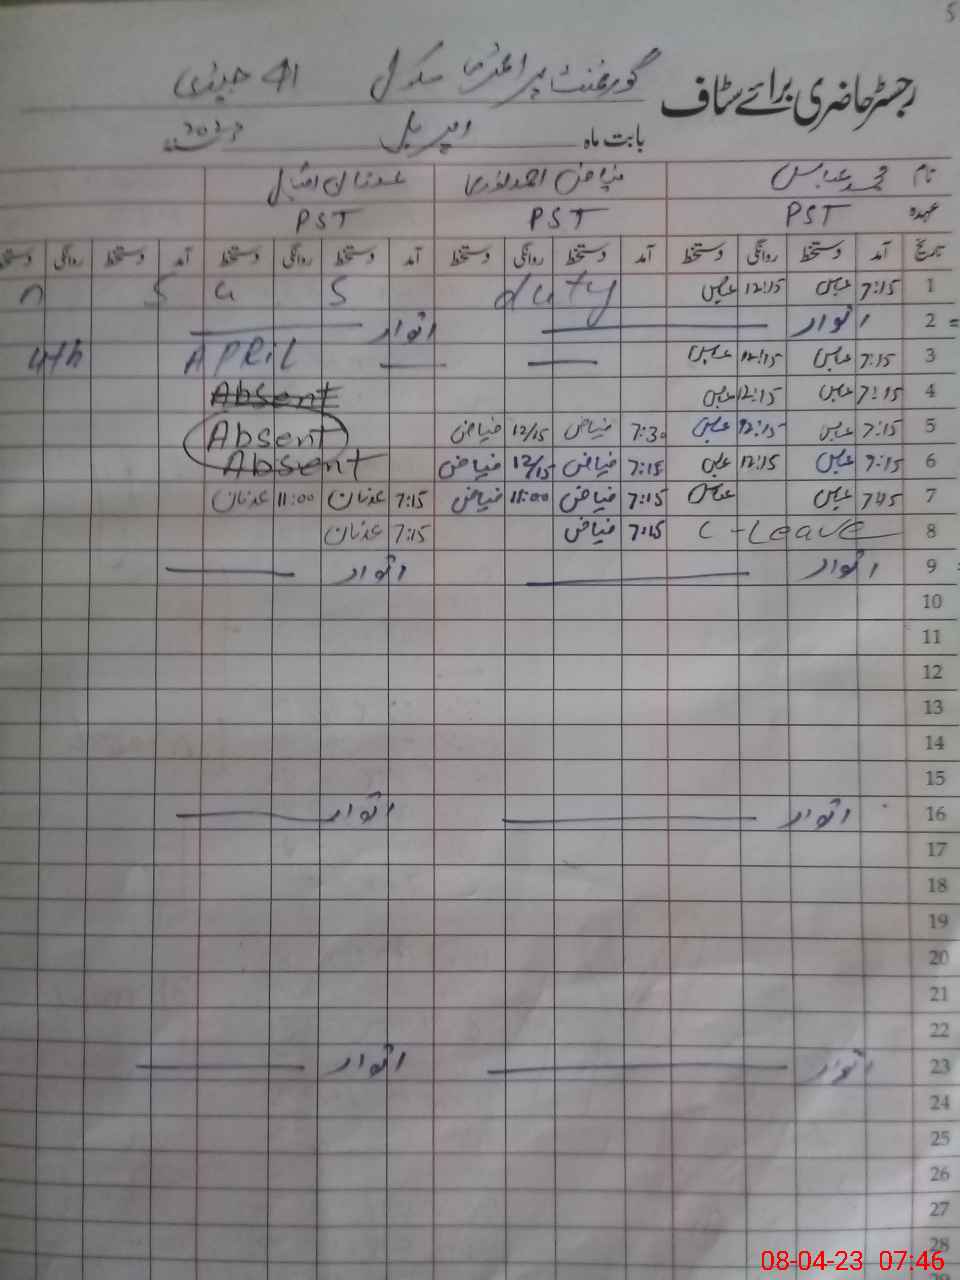 5
رجسٹر حاضری برائے سٹاف گورنمنٹ پرائمری سکول 41
بابت ماہ اپریل 2023
نام محمد عباس فیاض احمد عدنان اقبال
عہدہ PST PST PST
تاریخ آمد دستخط روانگی دستخط آمد دستخط روانگی دستخط آمد دستخط روانگی دستخط آمد دستخط روانگی دستخط
1 7:15 عباس 12:15 عباس duty S u S n
2 اتوار اتوار
3 7:15 عباس 12:15 عباس APRIL 4th
4 7:15 عباس 12:15 عباس Absent
5 7:15 عباس 12:15 عباس 7:30 فیاض 12/15 فیاض Absent
6 7:15 عباس 12:15 عباس 7:15 فیاض 12/15 فیاض Absent
7 7:45 عباس عباس 7:15 فیاض 11:00 فیاض 7:15 عدنان 11:00 عدنان
8 C-Leave 7:15 فیاض 7:15 عدنان
9 اتوار اتوار
10
11
12
13
14
15
16 اتوار اتوار
17
18
19
20
21
22
23 اتوار اتوار
24
25
26
27
28
08-04-23 07:46